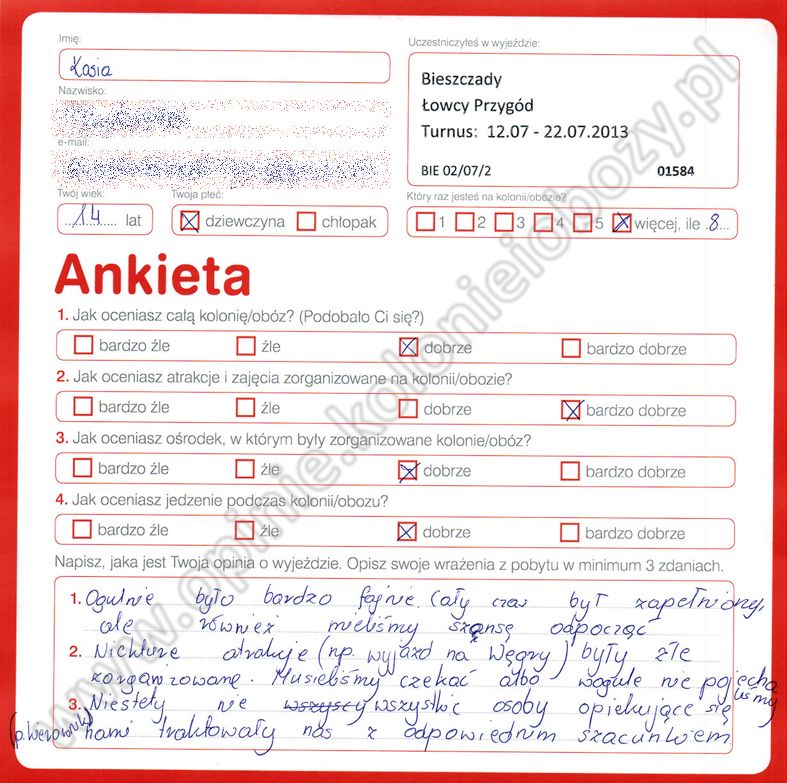 Imię:
Kasia
Nazwisko:
e-mail:
Twój wiek:
14 lat
Twoja płeć:
dziewczyna chłopak
Uczestniczyłeś w wyjeździe:
Bieszczady
Łowcy Przygód
Turnus: 12.07 - 22.07.2013
BIE 02/07/2 01584
Który raz jesteś na kolonii/obozie?
1 2 3 4 5 więcej, ile 8
Ankieta
1. Jak oceniasz całą kolonię/obóz? (Podobało Ci się?)
bardzo źle źle dobrze bardzo dobrze
2. Jak oceniasz atrakcje i zajęcia zorganizowane na kolonii/obozie?
bardzo źle źle dobrze bardzo dobrze
3. Jak oceniasz ośrodek, w którym były zorganizowane kolonie/obóz?
bardzo źle źle dobrze bardzo dobrze
4. Jak oceniasz jedzenie podczas kolonii/obozu?
bardzo źle źle dobrze bardzo dobrze
Napisz, jaka jest Twoja opinia o wyjeździe. Opisz swoje wrażenia z pobytu w minimum 3 zdaniach.
1. Ogulnie było bardzo fajnie. Cały czas był zapełniony,
ale również mieliśmy szansę odpocząć
2. Nichture atrakcje (np. wyjazd na Węgry) były źle
zorganizowane. Musieliśmy czekać albo wogule nie pojecha
liśmy
3. Niestety nie wszyscy wszystkie osoby opiekujące się
nami traktowały nas z odpowiednim szacunkiem
www.opinie.kolonieiobozy.pl